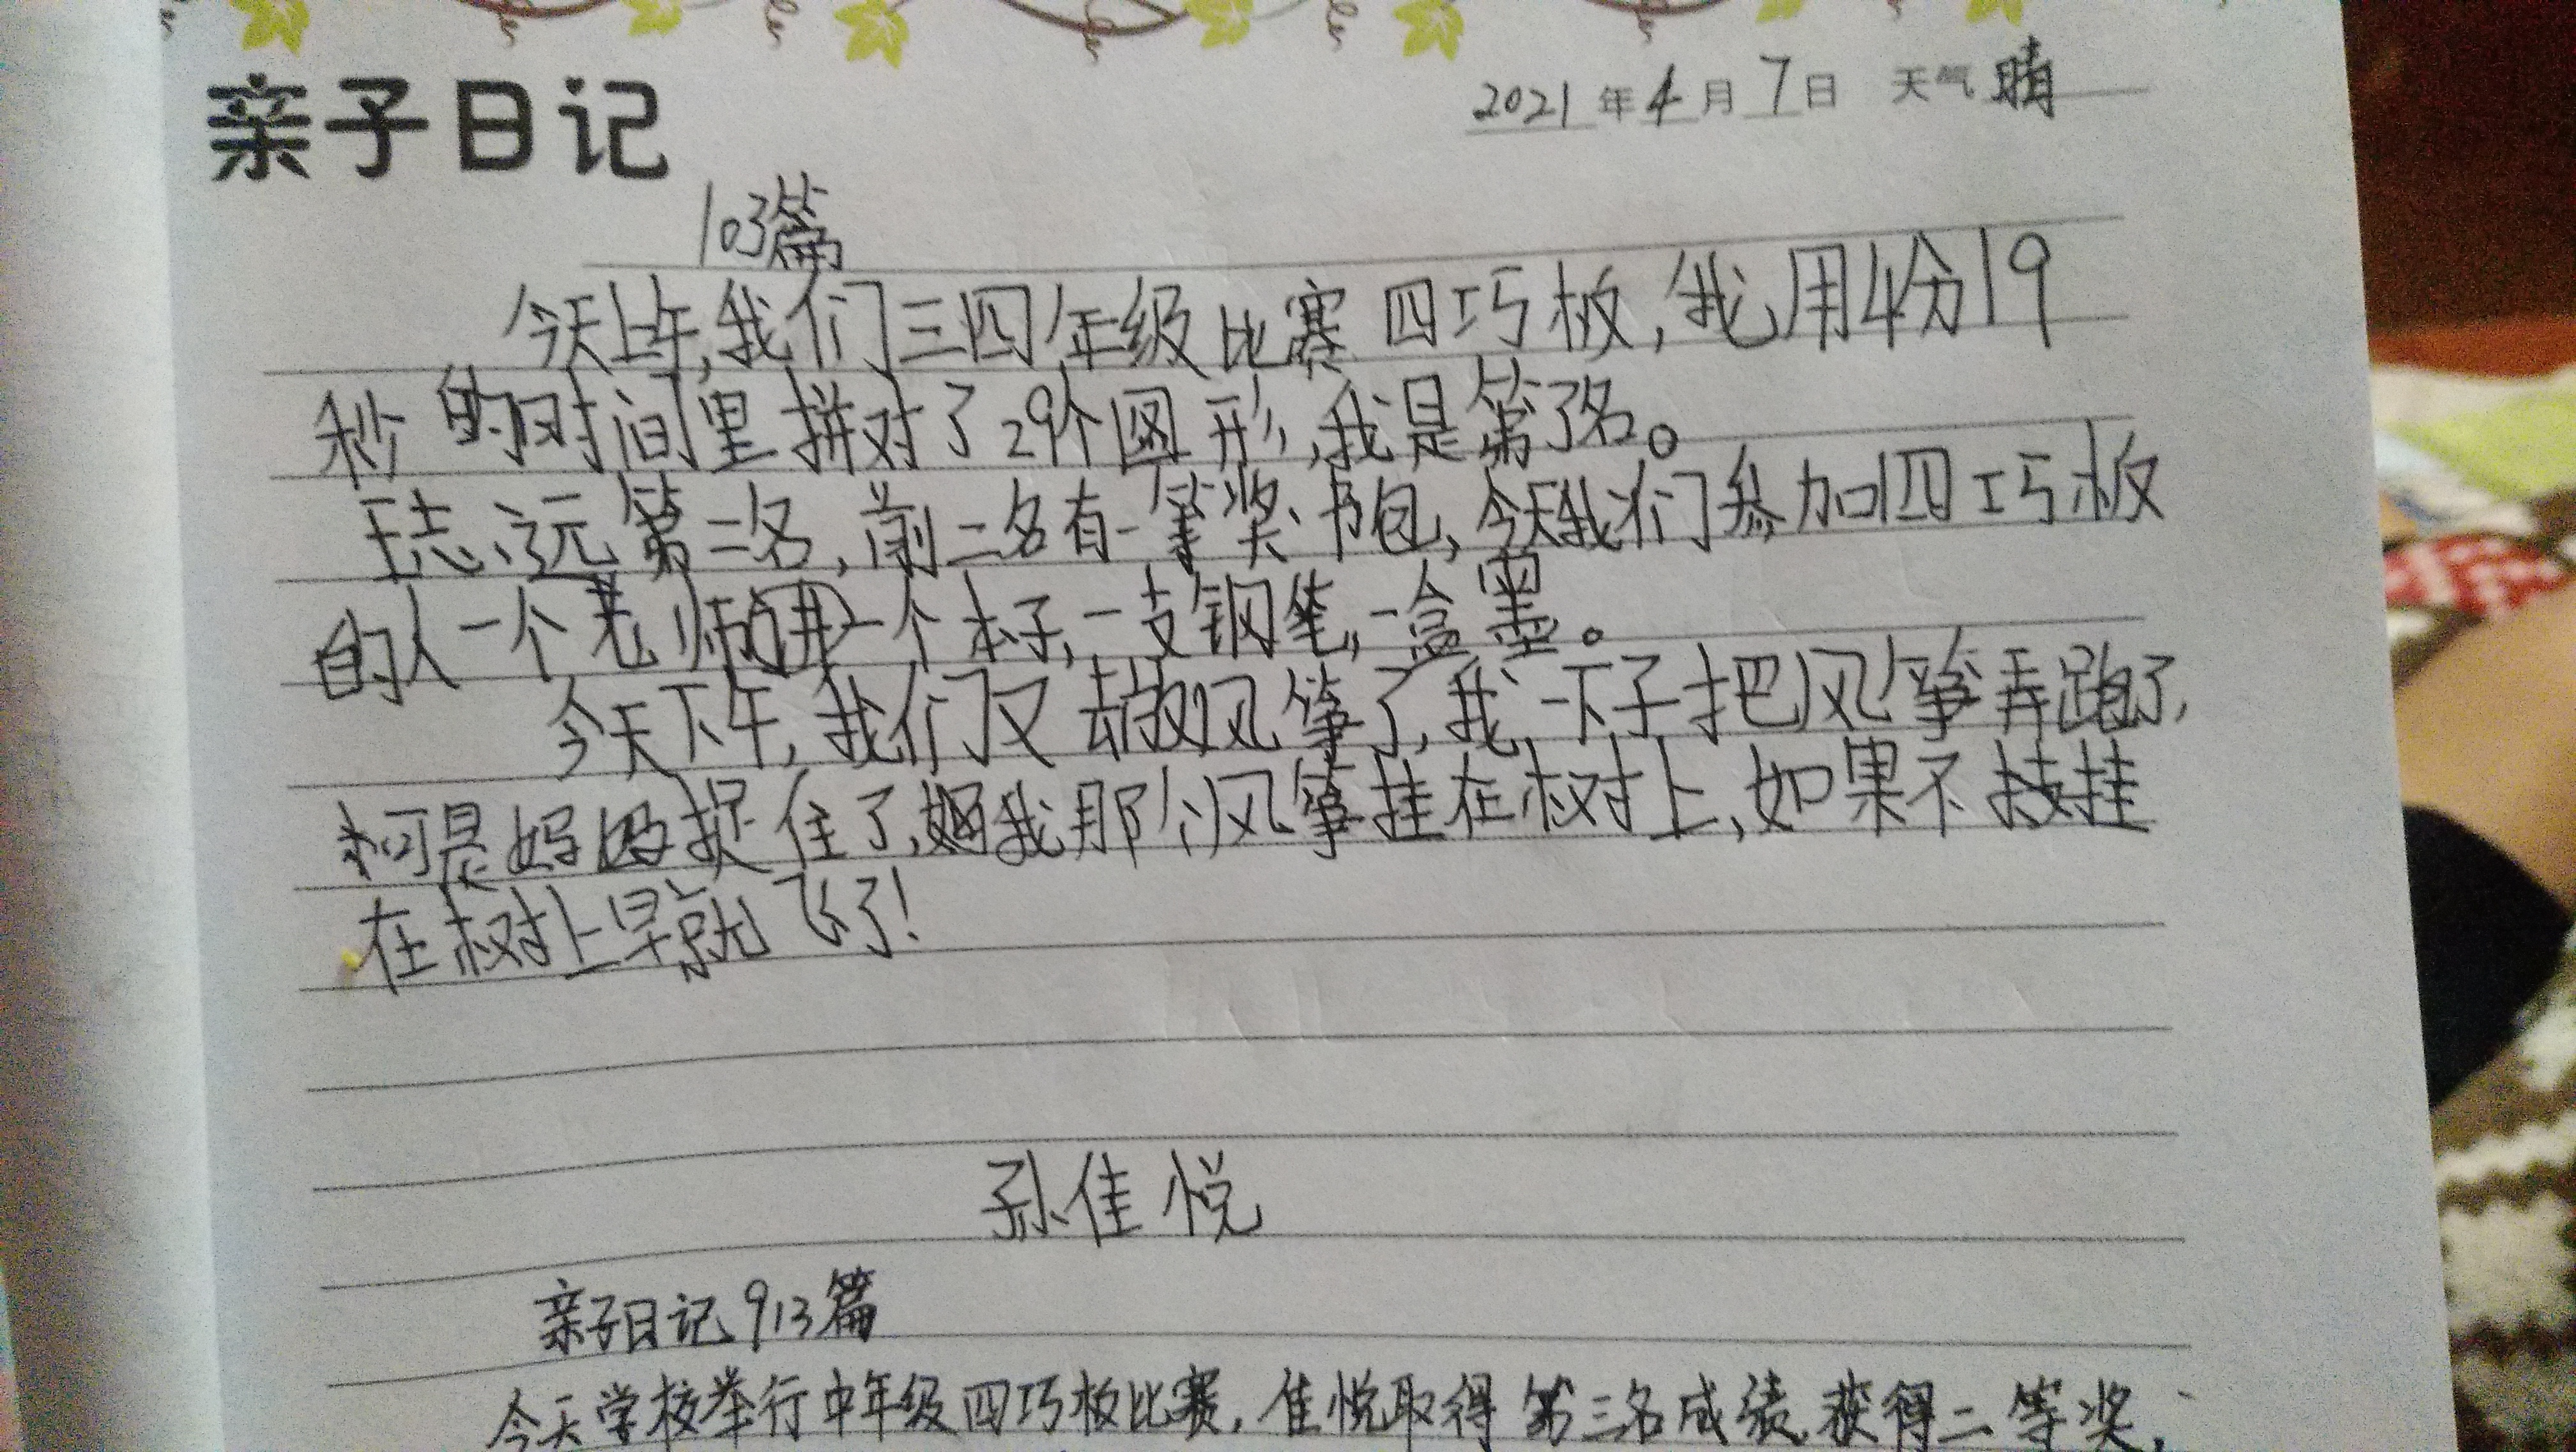 亲子日记
2021年4月7日 天气 晴
103篇
今天上午,我们三四年级比赛四巧板,我用4分19
秒的时间里拼对了29个图形,我是第3名。
王志远第二名,前二名有一等奖书包,今天我们参加四巧板
的人一个老师一个本子,一支钢笔,一盒墨。
今天下午,我们又去放风筝了,我一下子把风筝弄跑了,
可是妈妈捉住了,我那个风筝挂在树上,如果不挂
在树上早就飞了!
孙佳悦
亲子日记913篇
今天学校举行中年级四巧板比赛,佳悦取得第三名成绩,获得二等奖,